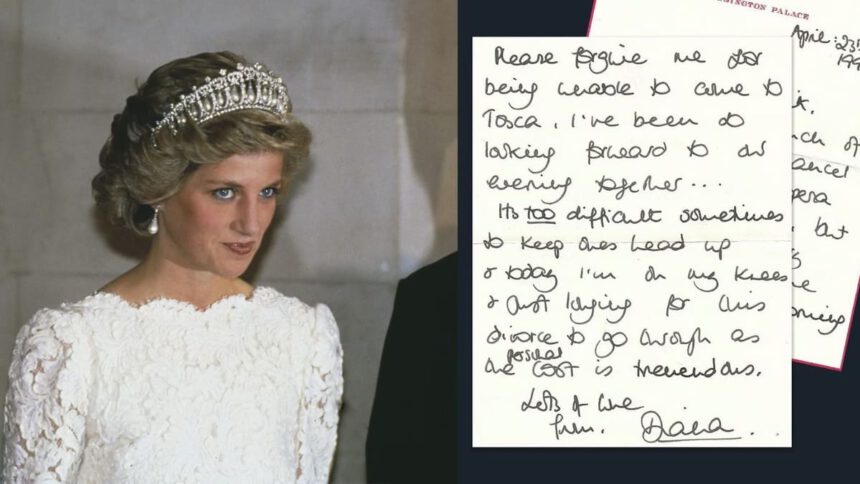 Please forgive me for
being unable to come to
Tosca. I've been so
looking forward to our
evening together...
Its too difficult sometimes
to keep ones head up
& today I'm on my knees
& just longing for this
divorce to go through as
the possible cost is tremendous.
Lots of love
from. Diana.
INGTON PALACE
April: 23rd
199
ancel
pera
but
oming